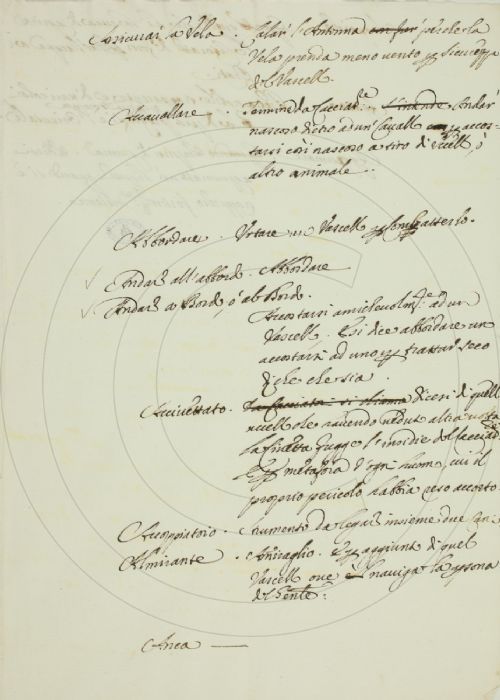 Assicurar la Vela. Calar l'Antenna con far' p͞ che la
Vela prenda meno vento p͞ sicurezza
del Vascell.
Accavallare. Termine da Cacciat.re Andar'
nascoso dietro ad un' Cavall p͞ accos-
tarsi così nascoso a tiro di uccell, ò
altro animale.
Abbordare. Urtare un Vascell p͞ combatterlo.
Andar all'abbord. Abbordare
Andar a Bord, ò al Bord.
Accostarsi amichevolm.te ad un
Vascell. E si dice abbordare un
accostarsi ad uno p͞ trattar' seco
di che che sia.
Accivettato. Tra Cacciatori si chiama dicesi di quell
uccell che havendo vedut altra volta
la Civetta fugge l'insidie del Cacciad.
E p͞ metafora d'ogn' huomo, cui il
proprio pericolo habbia reso accorto.
Accoppiatoio. Strumento da legare insieme due
Almirante. Amiraglio. E p͞ aggiunt di quel
Vascell ove naviga la p͞sona
del
Anca